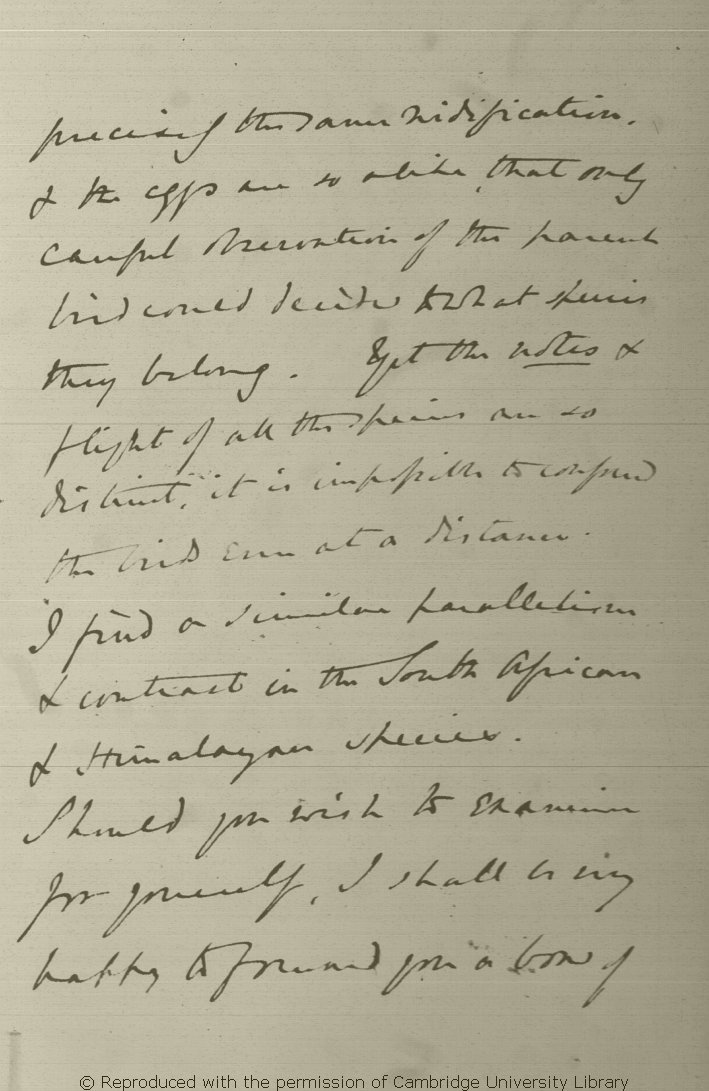 precisely the same nidification.
& the eggs are so alike, that only
careful observation of the parent
bird could decide to what species
they belong. Yet the notes &
flight of all the species are so
distinct, it is impossible to confound
the birds even at a distance.
I find a similar parallelism
& contrast in the South African
& Himalayan species.
Should you wish to examine
for yourself, I shall be very
happy to forward you a box of
© Reproduced with the permission of Cambridge University Library